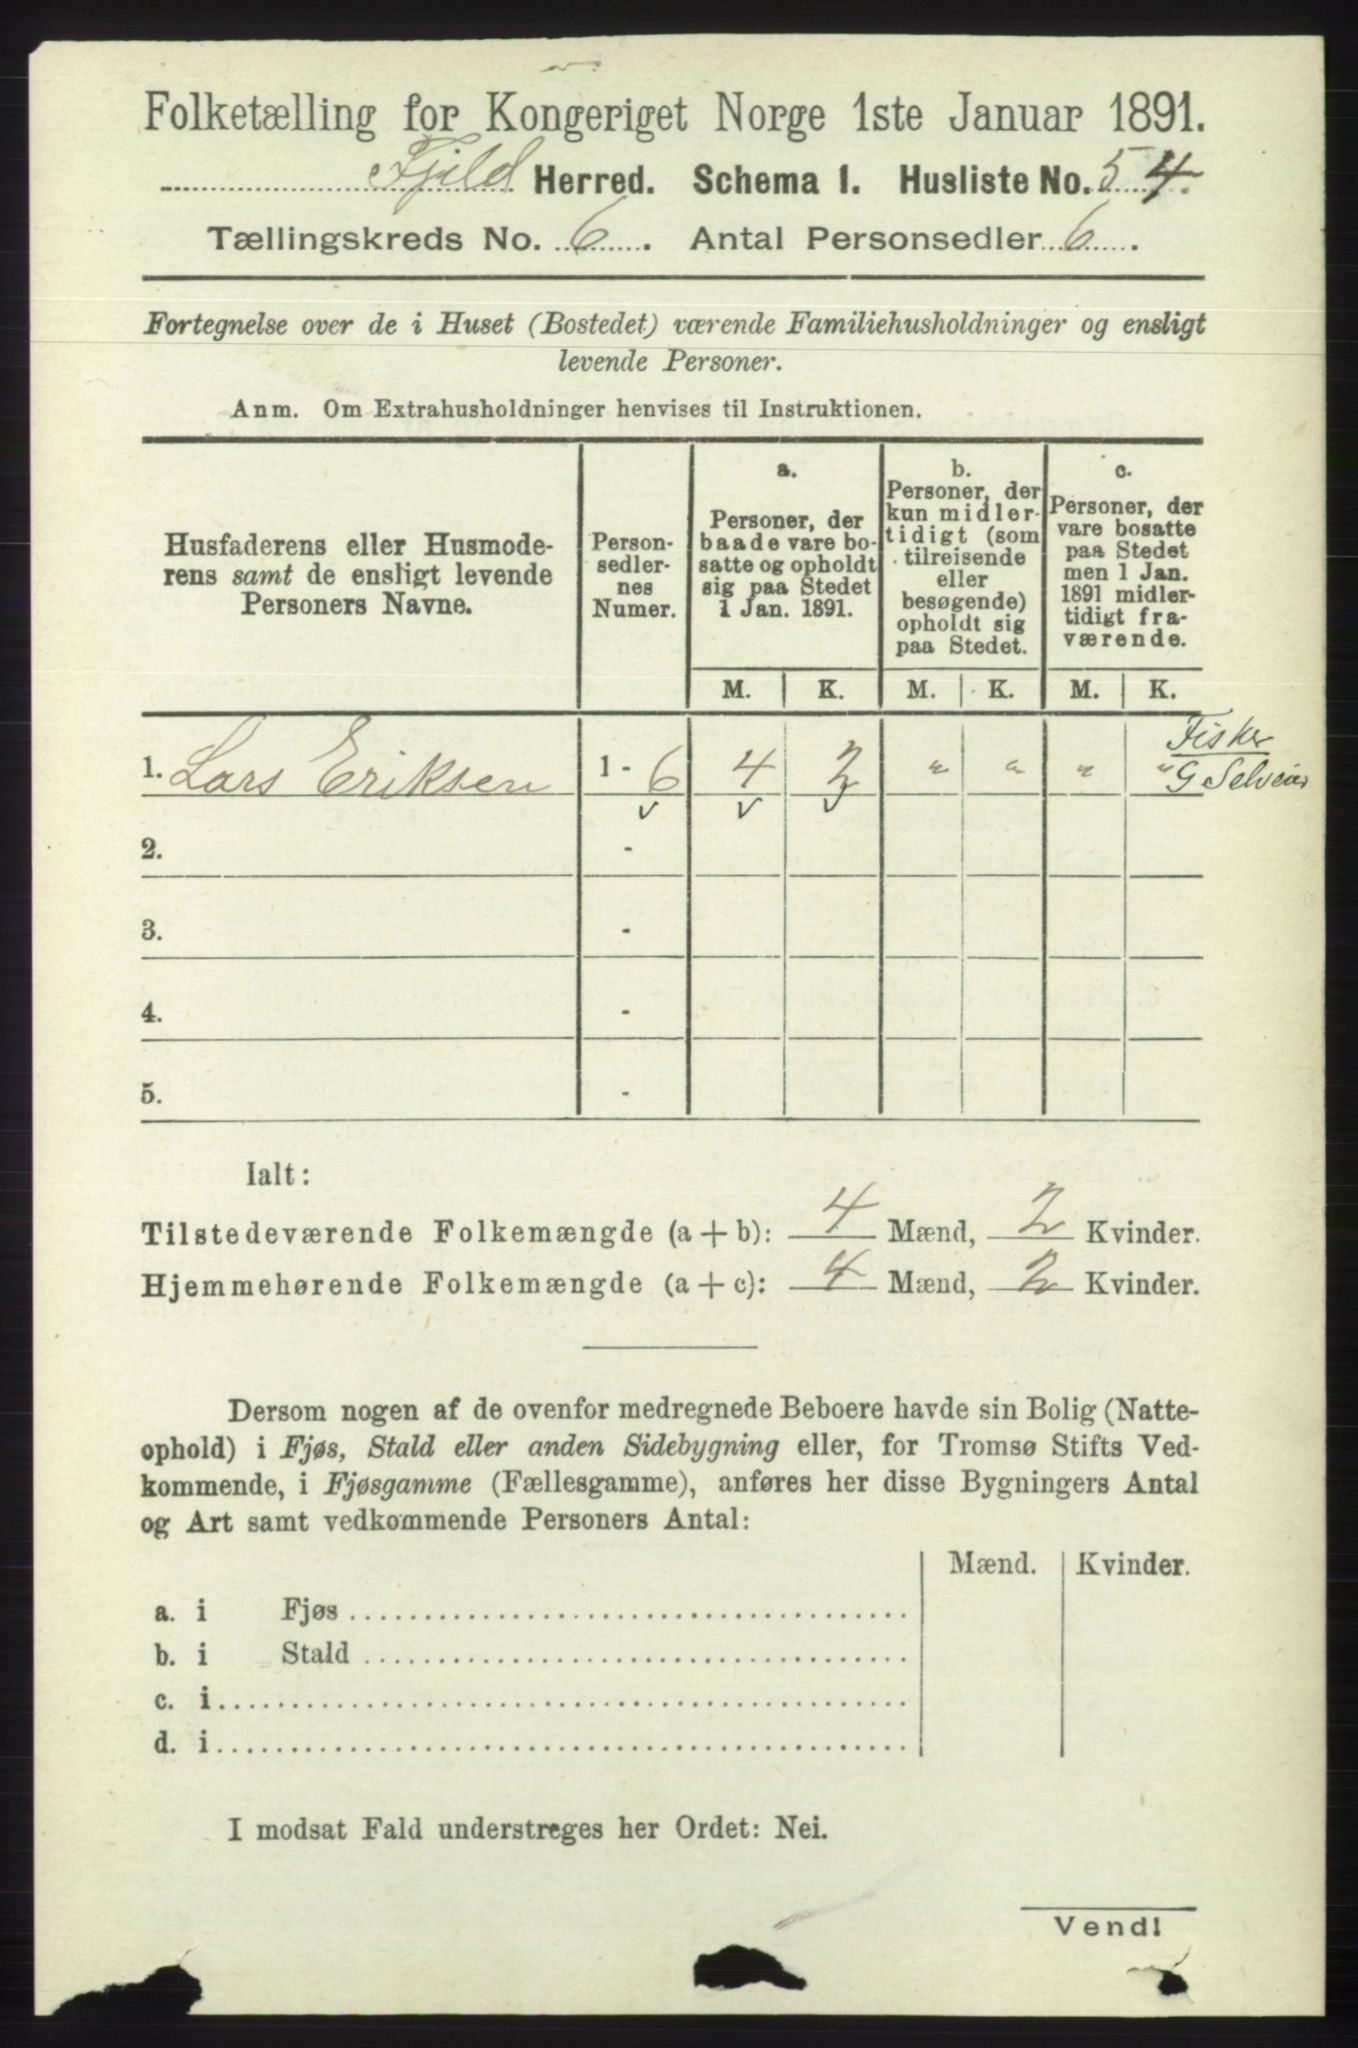 Folketælling for Kongeriget Norge 1ste Januar 1891.
Fjeld Herred. Schema 1. Husliste No. 54.
Tællingskreds No. 6. Antal Personsedler 6.
Fortegnelse over de i Huset (Bostedet) værende Familiehusholdninger og ensligt
levende Personer.
Anm. Om Extrahusholdninger henvises til Instruktionen.
Husfaderens eller Husmode-
rens samt de ensligt levende
Personers Navne.
Person-
sedler-
nes
Numer.
a.
Personer, der
baade vare bo-
satte og opholdt
sig paa Stedet
1 Jan. 1891.
b.
Personer, der
kun midler-
tidigt (som
tilreisende
eller
besøgende)
opholdt sig
paa Stedet.
c.
Personer, der
vare bosatte
paa Stedet
men 1 Jan.
1891 midler-
tidigt fra-
værende.
M. K. M. K. M. K.
Fisker
1. Lars Eriksen 1 - 6 4 2 " " " " G Selveier
v v v
2. -
3. -
4. -
5. -
Ialt:
Tilstedeværende Folkemængde (a + b): 4 Mænd, 2 Kvinder.
Hjemmehørende Folkemængde (a + c): 4 Mænd, 2 Kvinder.
Dersom nogen af de ovenfor medregnede Beboere havde sin Bolig (Natte-
ophold) i Fjøs, Stald eller anden Sidebygning eller, for Tromsø Stifts Ved-
kommende, i Fjøsgamme (Fællesgamme), anføres her disse Bygningers Antal
og Art samt vedkommende Personers Antal:
Mænd. Kvinder.
a. i Fjøs
b. i Stald
c. i
d. i
I modsat Fald understreges her Ordet: Nei.
Vend!